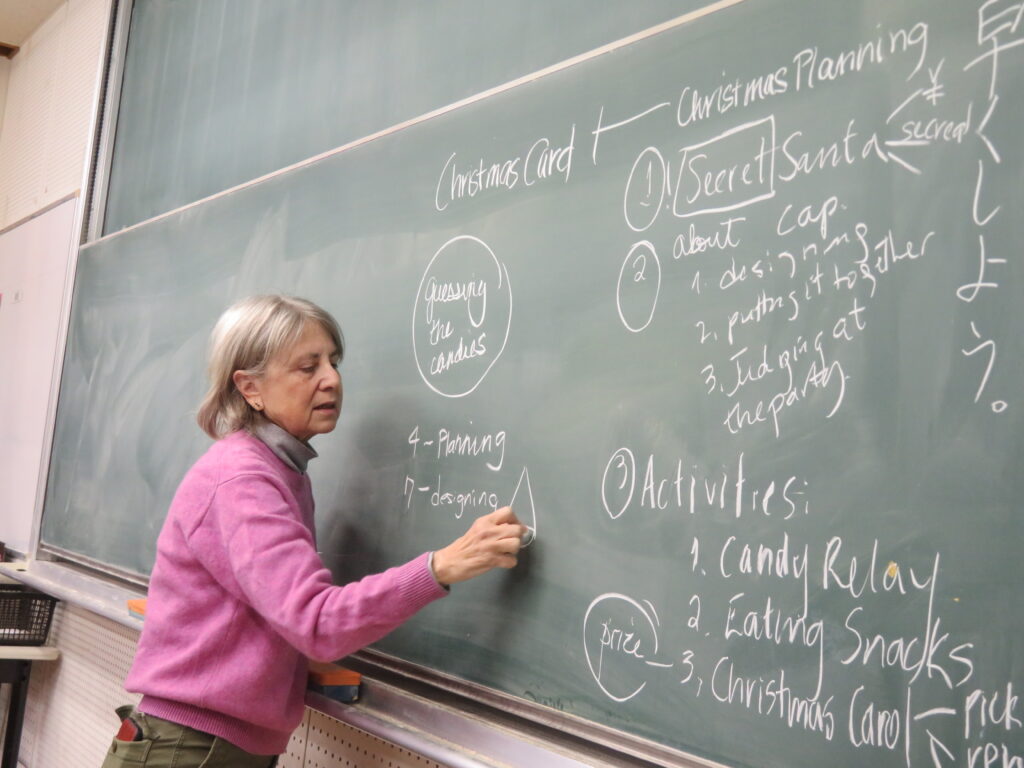 Christmas Planning
Christmas Card
① Secret Santa
¥
secread
② about cap.
1. designing
2. putting it together
3. Judging at
the party.
③ Activities:
1. Candy Relay
2. Eating Snacks
3, Christmas Carol
prize
pick
guessing
the
candies
4 - Planning
7 - designing
早くしよう。